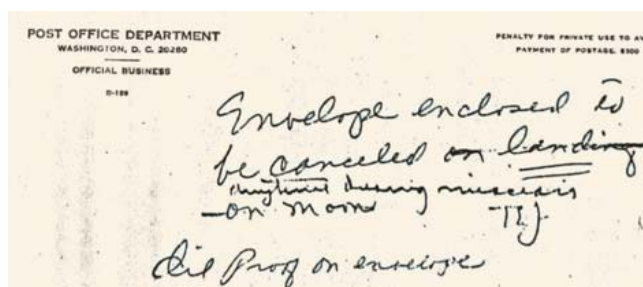 POST OFFICE DEPARTMENT
WASHINGTON, D. C. 20260
OFFICIAL BUSINESS
D-189
PENALTY FOR PRIVATE USE TO AV
PAYMENT OF POSTAGE, $300
Envelope enclosed to
be canceled on landing
anytime during mission
- on moon
Die Proof on envelope